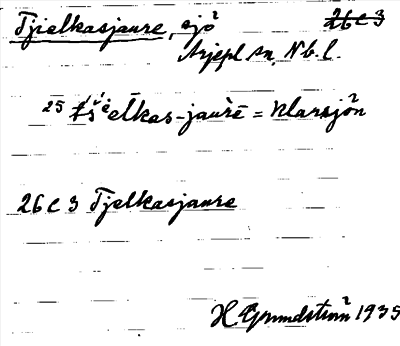 Tjielkasjaure, sjö 26 C 3
Arjepl sn, Nb. l.
25 tš́ėlkas-jaùrē = Klarsjön
26 C 3 Tjelkasjaure
H. Grundström 1935